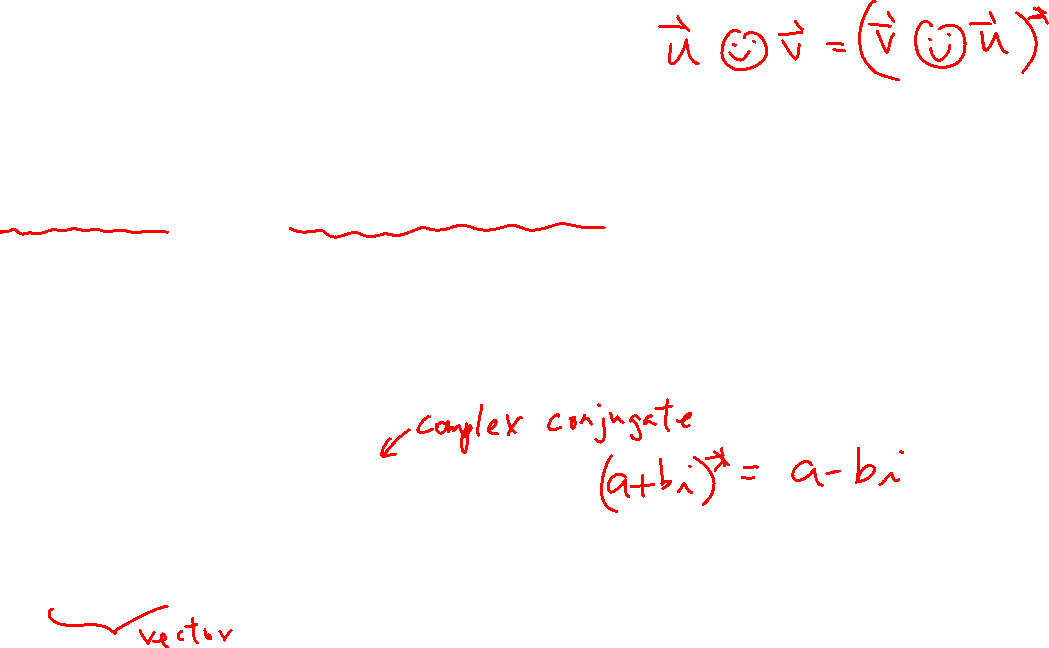 u⃗ ☺ v⃗ = (v⃗ ☺ u⃗)*
complex conjugate
(a+bi)* = a-bi
vector